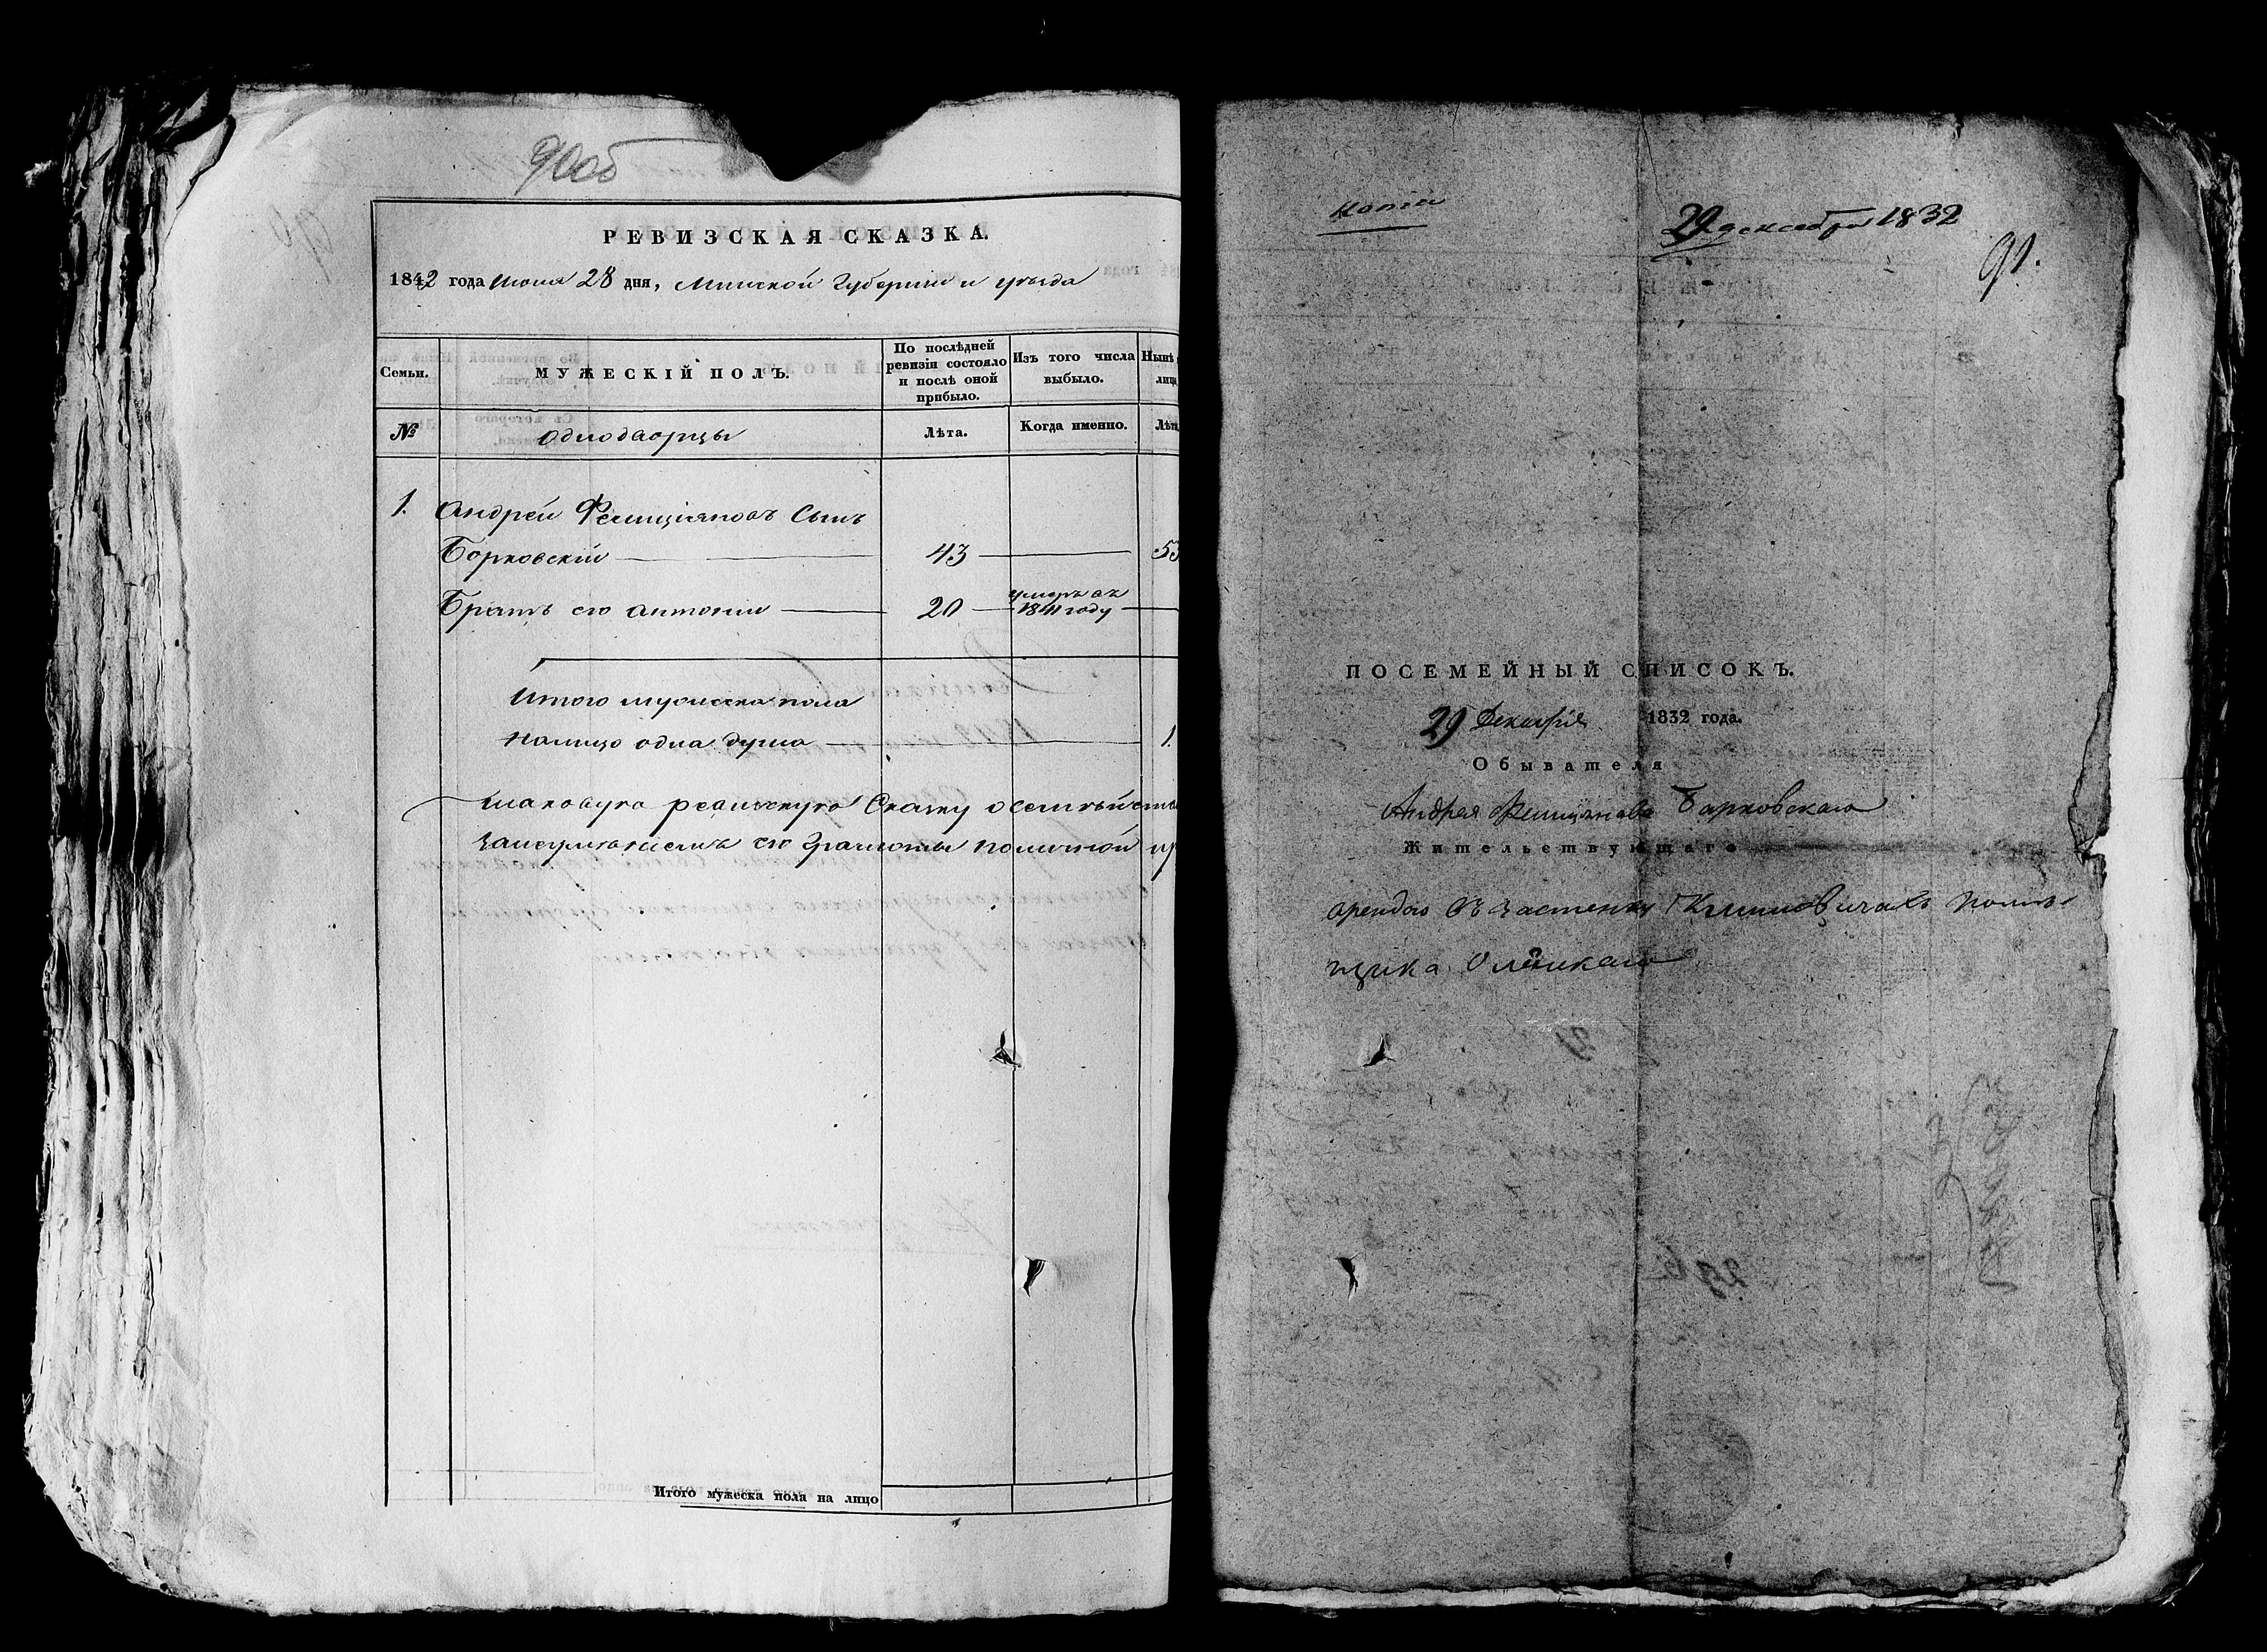 90об
РЕВИЗСКАЯ СКАЗКА.
1842 года Июня 28 дня, Минской Губернии и уезда
Семьи.
МУЖЕСКІЙ ПОЛЪ.
По послѣдней ревизіи состояло и послѣ оной прибыло.
Изъ того числа выбыло.
Нынѣ
лица
№
Однодворцы
Лѣта.
Когда именно.
Лѣт
1. Андрей Фелиціяновъ Сынъ
Борковскій 43 53
Братъ его Антоній 20 умеръ въ 1841 году
Итого мужеска пола
налицо одна душа 1.
таковую ревизскую Сказку о семействе
за неумениемъ его грамоты по личной
Итого мужеска пола на лицо
Копія
29 декабря 1832
91.
ПОСЕМЕЙНЫЙ СПИСОКЪ.
29 Декабря 1832 года.
Обывателя
Андрея Фелиціянова Барковскаго
Жительствующаго
арендою въ застенку Климовичахъ помѣ-
щика